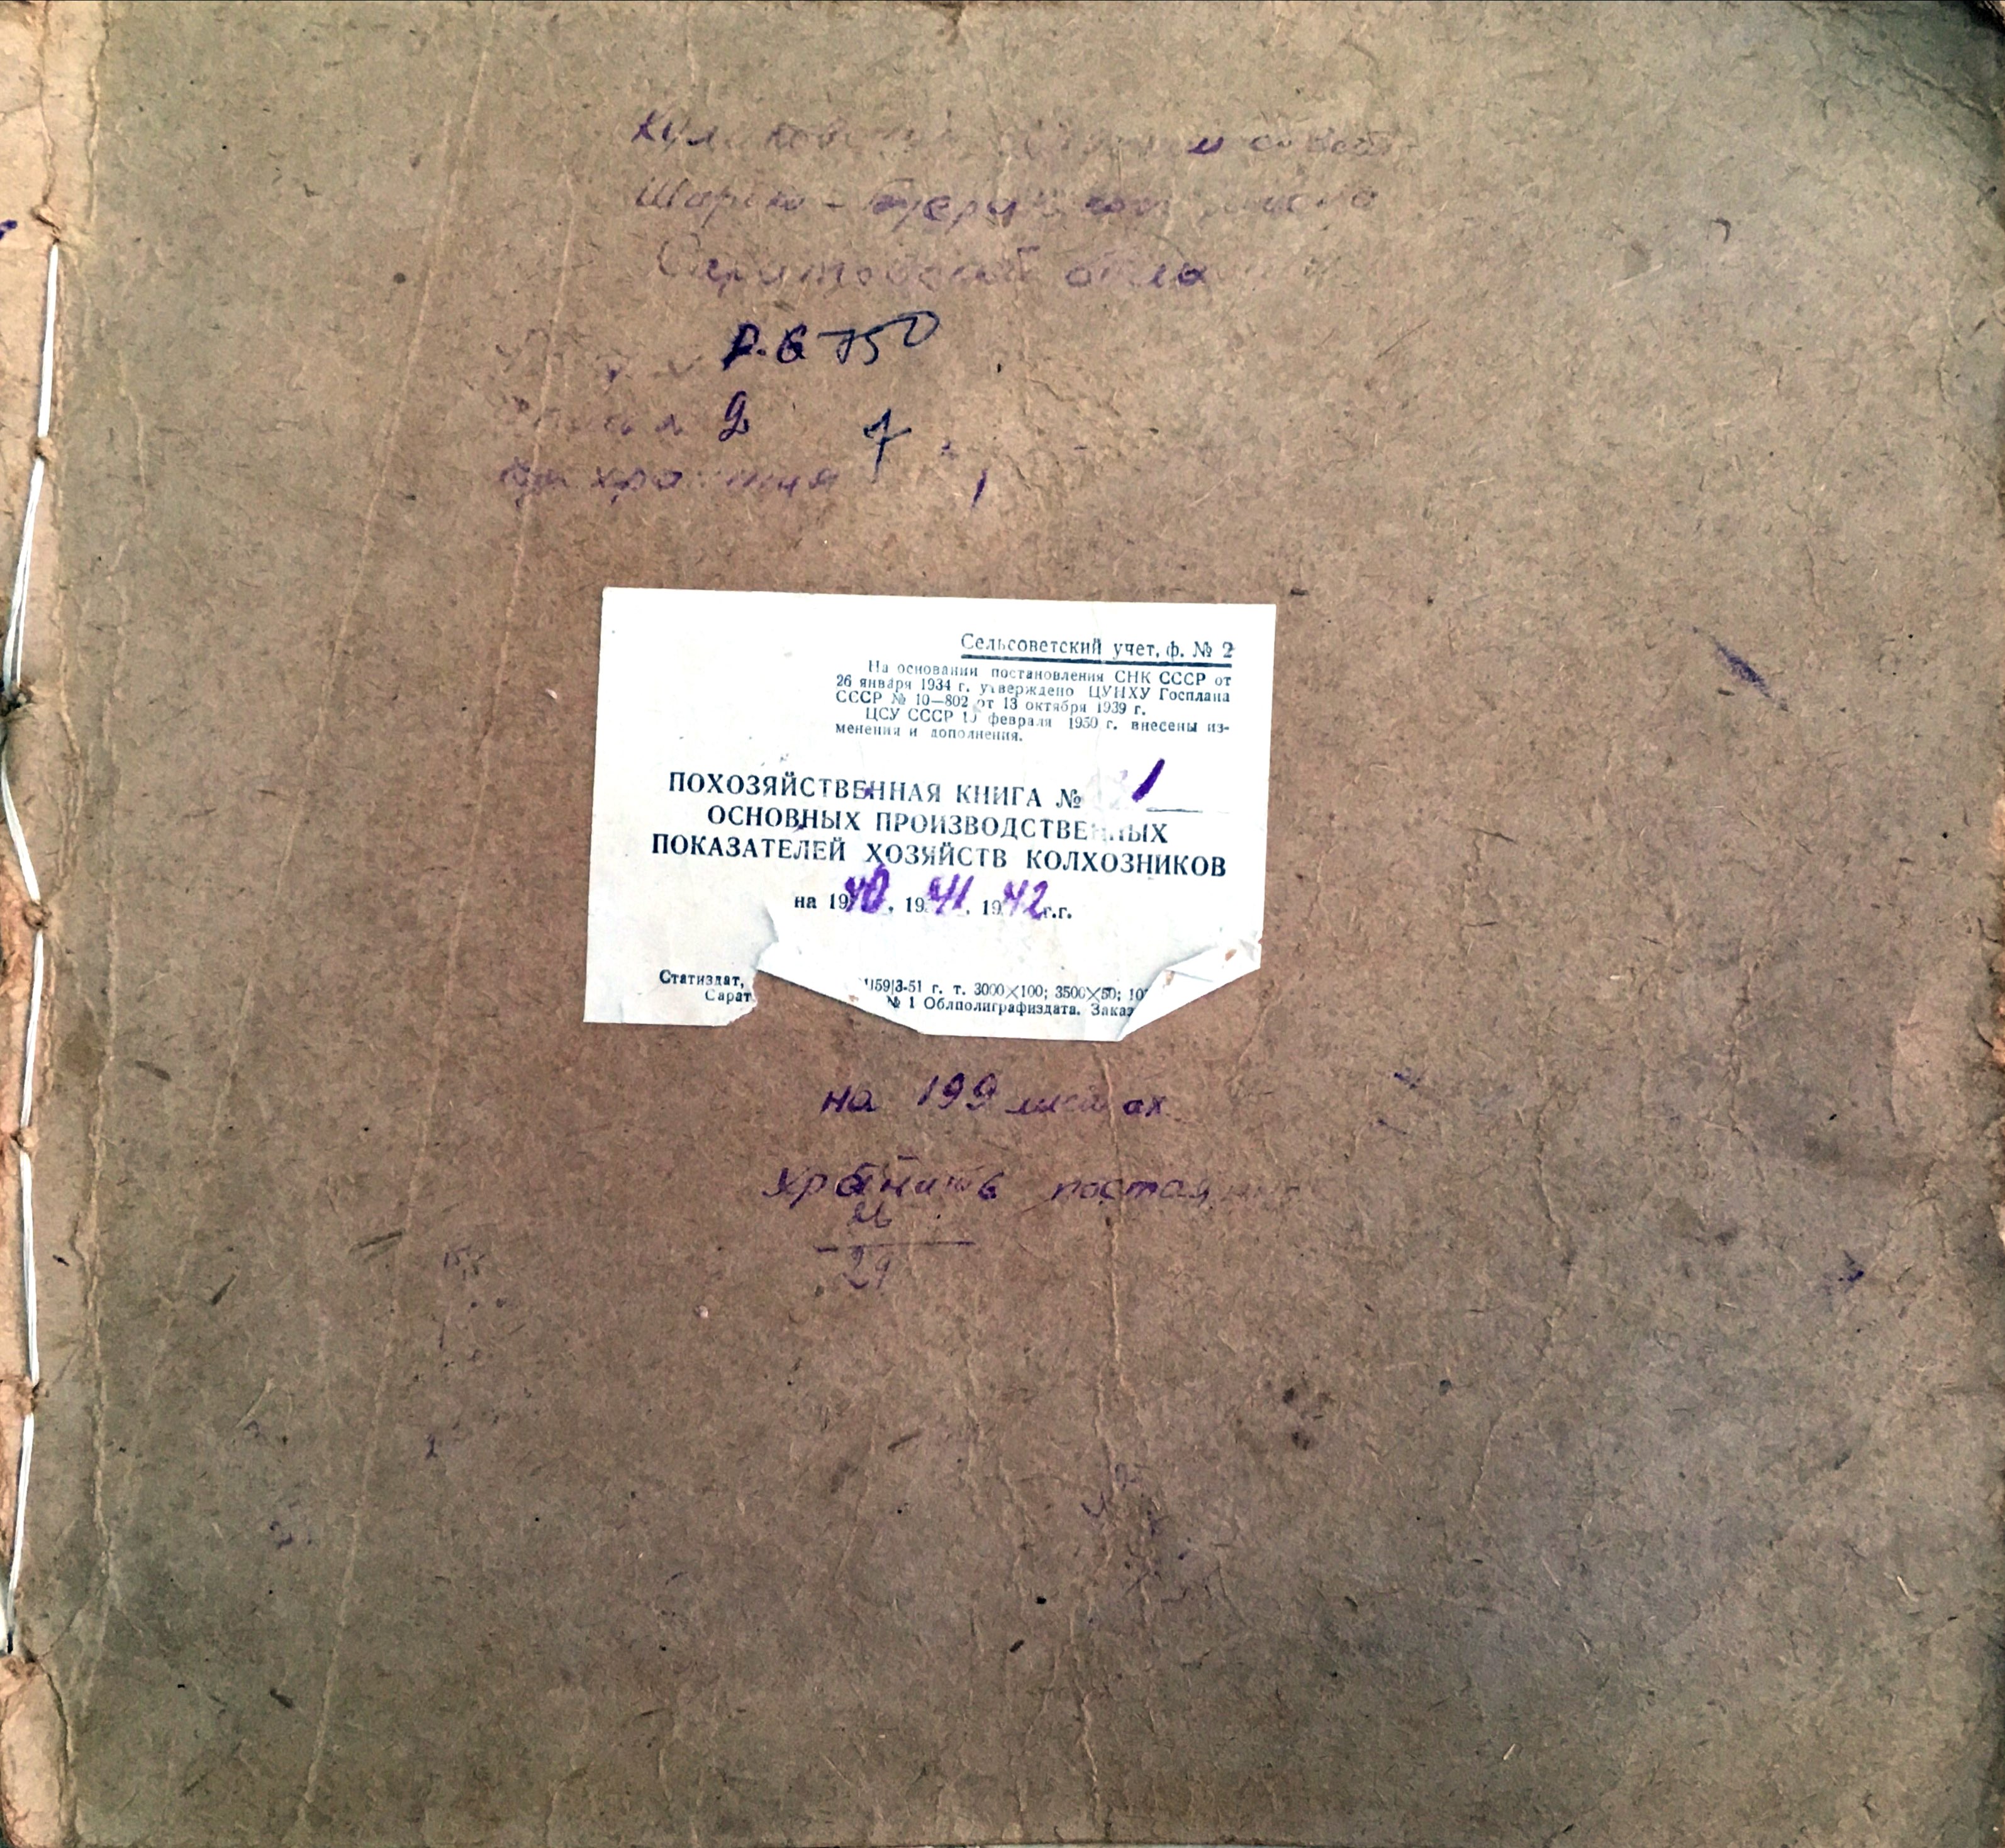 Саратовской
Р.6 750
2 7
хранения 1
Сельсоветский учет, ф. № 2
На основании постановления СНК СССР от
26 января 1934 г. утверждено ЦУНХУ Госплана
СССР № 10—802 от 13 октября 1939 г.
ЦСУ СССР февраля 1950 г. внесены из-
менения и дополнения.
ПОХОЗЯЙСТВЕННАЯ КНИГА № 1
ОСНОВНЫХ ПРОИЗВОДСТВЕННЫХ
ПОКАЗАТЕЛЕЙ ХОЗЯЙСТВ КОЛХОЗНИКОВ
на 1940, 1941, 1942 г.г.
Статиздат, 59|3-51 г. т. 3000×100; 3500×50; 10
Сарат № 1 Облполиграфиздата. Заказ
на 199 листах
хранить постоянно
29